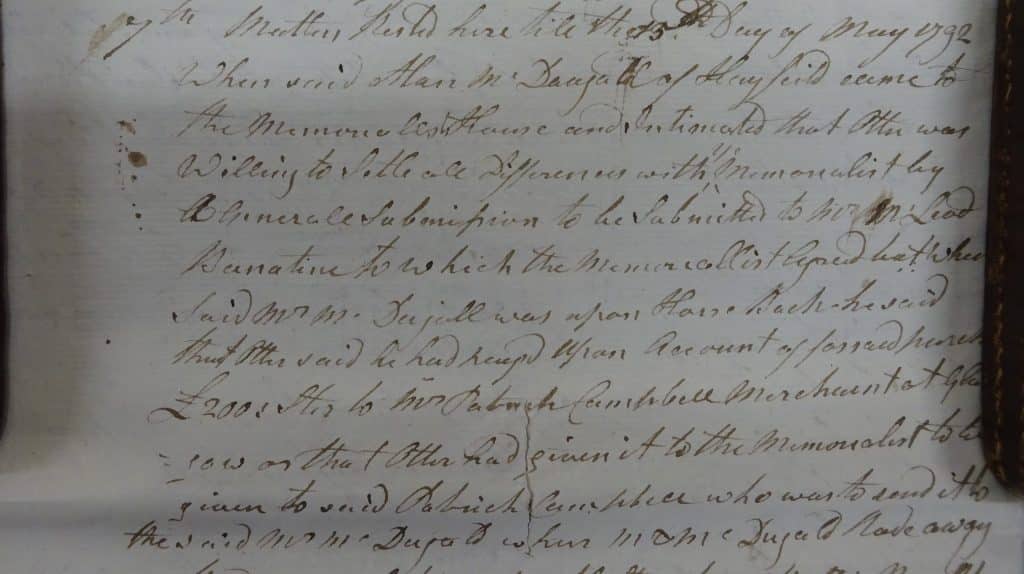 7th Matters Rested here till the 15th Day of May 1792
When said Allan Mc Dougall of Hayfeild came to
the Memorallists House and Intimated that Otter was
Willing to Setle all Differences with ye Memorialist by
A Generall Submission to be Submitted to Mr Mc Leod
Banatine to which the Memoriallist Agreed but when
Said Mr Mc Dugall was upon Horse Back he said
that Otter said he had
upon Account of
£200 Ster to Mr Patrick Campbell Merchaunt at Glas
=gow or that Otter had given it to the Memorialist to be
given to said Patrick Campbell who was to send it to
the said Mr Mc Dugald when Mr Mc Dugald Rode away